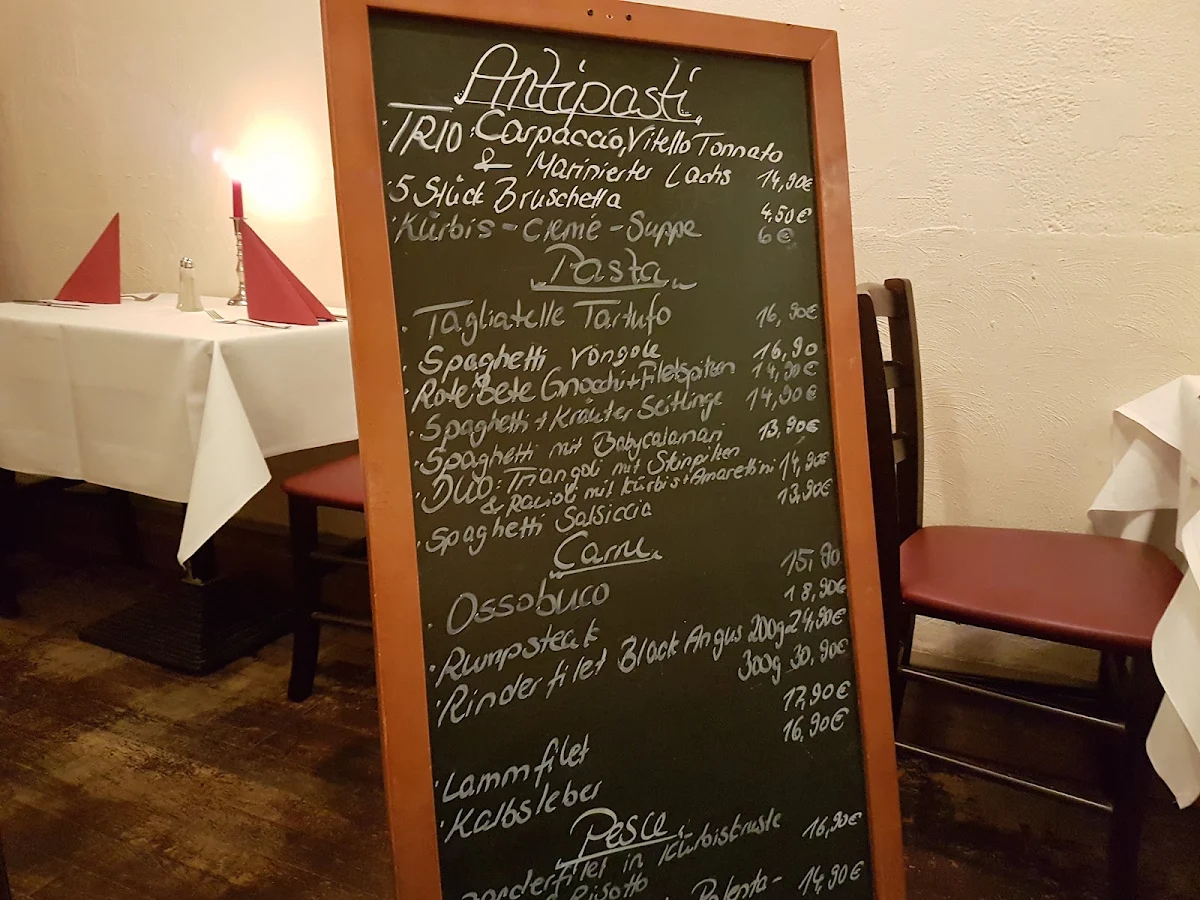 Antipasti
TRIO: Carpaccio, Vitello Tonnato
& Marinierter Lachs 14,90€
5 Stück Bruschetta 4,50€
Kürbis-Cremé-Suppe 6€
Pasta
Tagliatelle Tartufo 16,90€
Spaghetti Vongole 16,90
Rote Bete Gnocchi + Filetspitzen 14,90€
Spaghetti + Kräuter Seitlinge 14,90€
Spaghetti mit Babycalamari 13,90€
DUO: Triangoli mit Steinpilzen
& Ravioli mit Kürbis + Amarettini 14,90€
Spaghetti Salsiccia 13,90€
Carne
Ossobuco 15,90
Rumpsteak 18,90€
Rinderfilet Black Angus 200g 24,90€
300g 30,90€
Lammfilet 17,90€
Kalbsleber 16,90€
Pesce
Zanderfilet in Kürbiskruste 16,90€
Risotto
Polenta- 14,90€